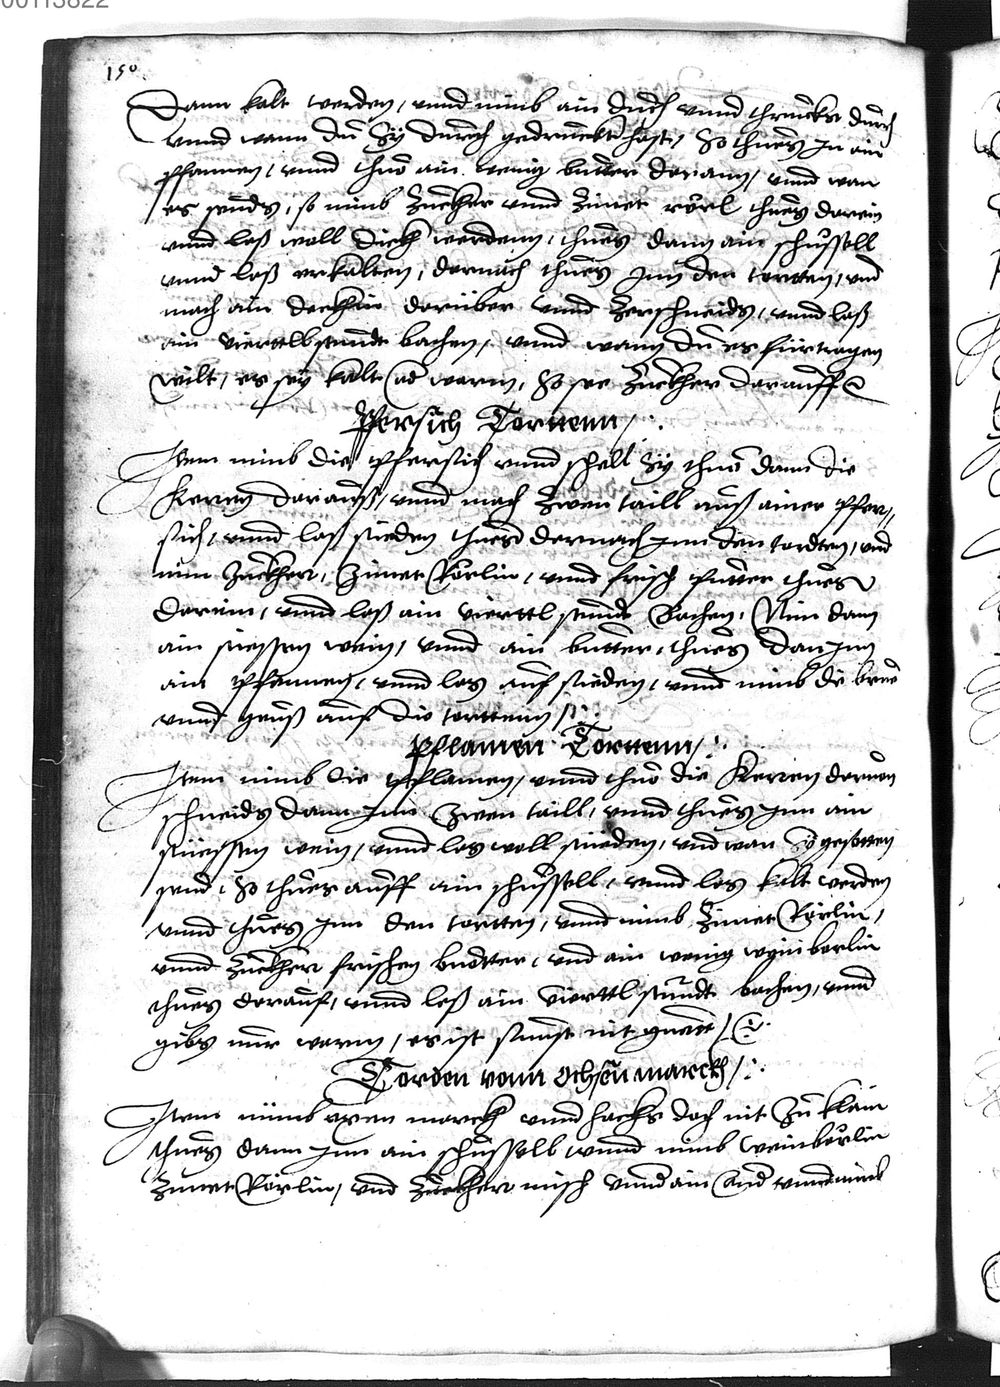 00113822
150
Dann kalt werden, vnnd nimb ain duech vnnd thruckhs durch
vnnd wann du Sy durch gedruckht hast, So thues In ain
Pfannen, vnnd thuo ain wenig butter daran, vnnd wan
es seuds, so nimb Zuckher vnnd Zimet rörl thues darein
vnnd laß woll dickh werdenn, thues dann ain schüssell
vnnd laß erkalten, darnach thues Inn den tortten, vnd
mach ain deckhin darüber vnnd Zerschneids, vnnd laß
ain vierttlbstundt bachen, vnnd wann du es fürtragen
wilt, es sey kalt od warm, So see Zuckher darauff
Pfersich Tortenn
Item nimb die pfersich vnnd schell Sy thuo dann die
Kerren darauß, vnnd mach Zwen taill auß ainer pfer,,
sich, vnnd laß sieden thues darnach Inn den tordten, vnd
nim Zuckher, Zimet Rörlin, vnnd frisch putter thues
darein, vnnd laß ain vierttl stundt Bachen, Nim dann
ain siessen wein, vnnd ain butter, thues dan Inn
ain Pfannen, vnnd las auf sieden, vnnd nimb die brüe
vnnd geuß auf die torttenn
Pflamen Tortenn
Item nimb die pflamen, vnnd thuo die Kerren daruon
schneids dann Inn Zwen taill, vnnd thues Inn ain
siessen wein, vnnd las woll sieden, vnd wan Sy gesotten
send, So thues auff ain schüssell, vnnd las kalt werden
vnnd thues Inn den tortten, vnnd nimb Zimet Rörlin,
vnnd Zuckher frischen buotter, vnd ain wenig weinberlin
thues darauf, vnnd laß ain vierttl stundt bachen, vnnd
gibs nur warm, es ist sunst nit guett
Torden vonn Ochsen marckh
Item nimb oxen marckh vnnd hackhs doch nit Zu klain
thues dann Inn ain schüssell vnnd nimb weinberlin
Zimet Rörlin, vnd Zuckher misch vnnd ain And vnnd nimb